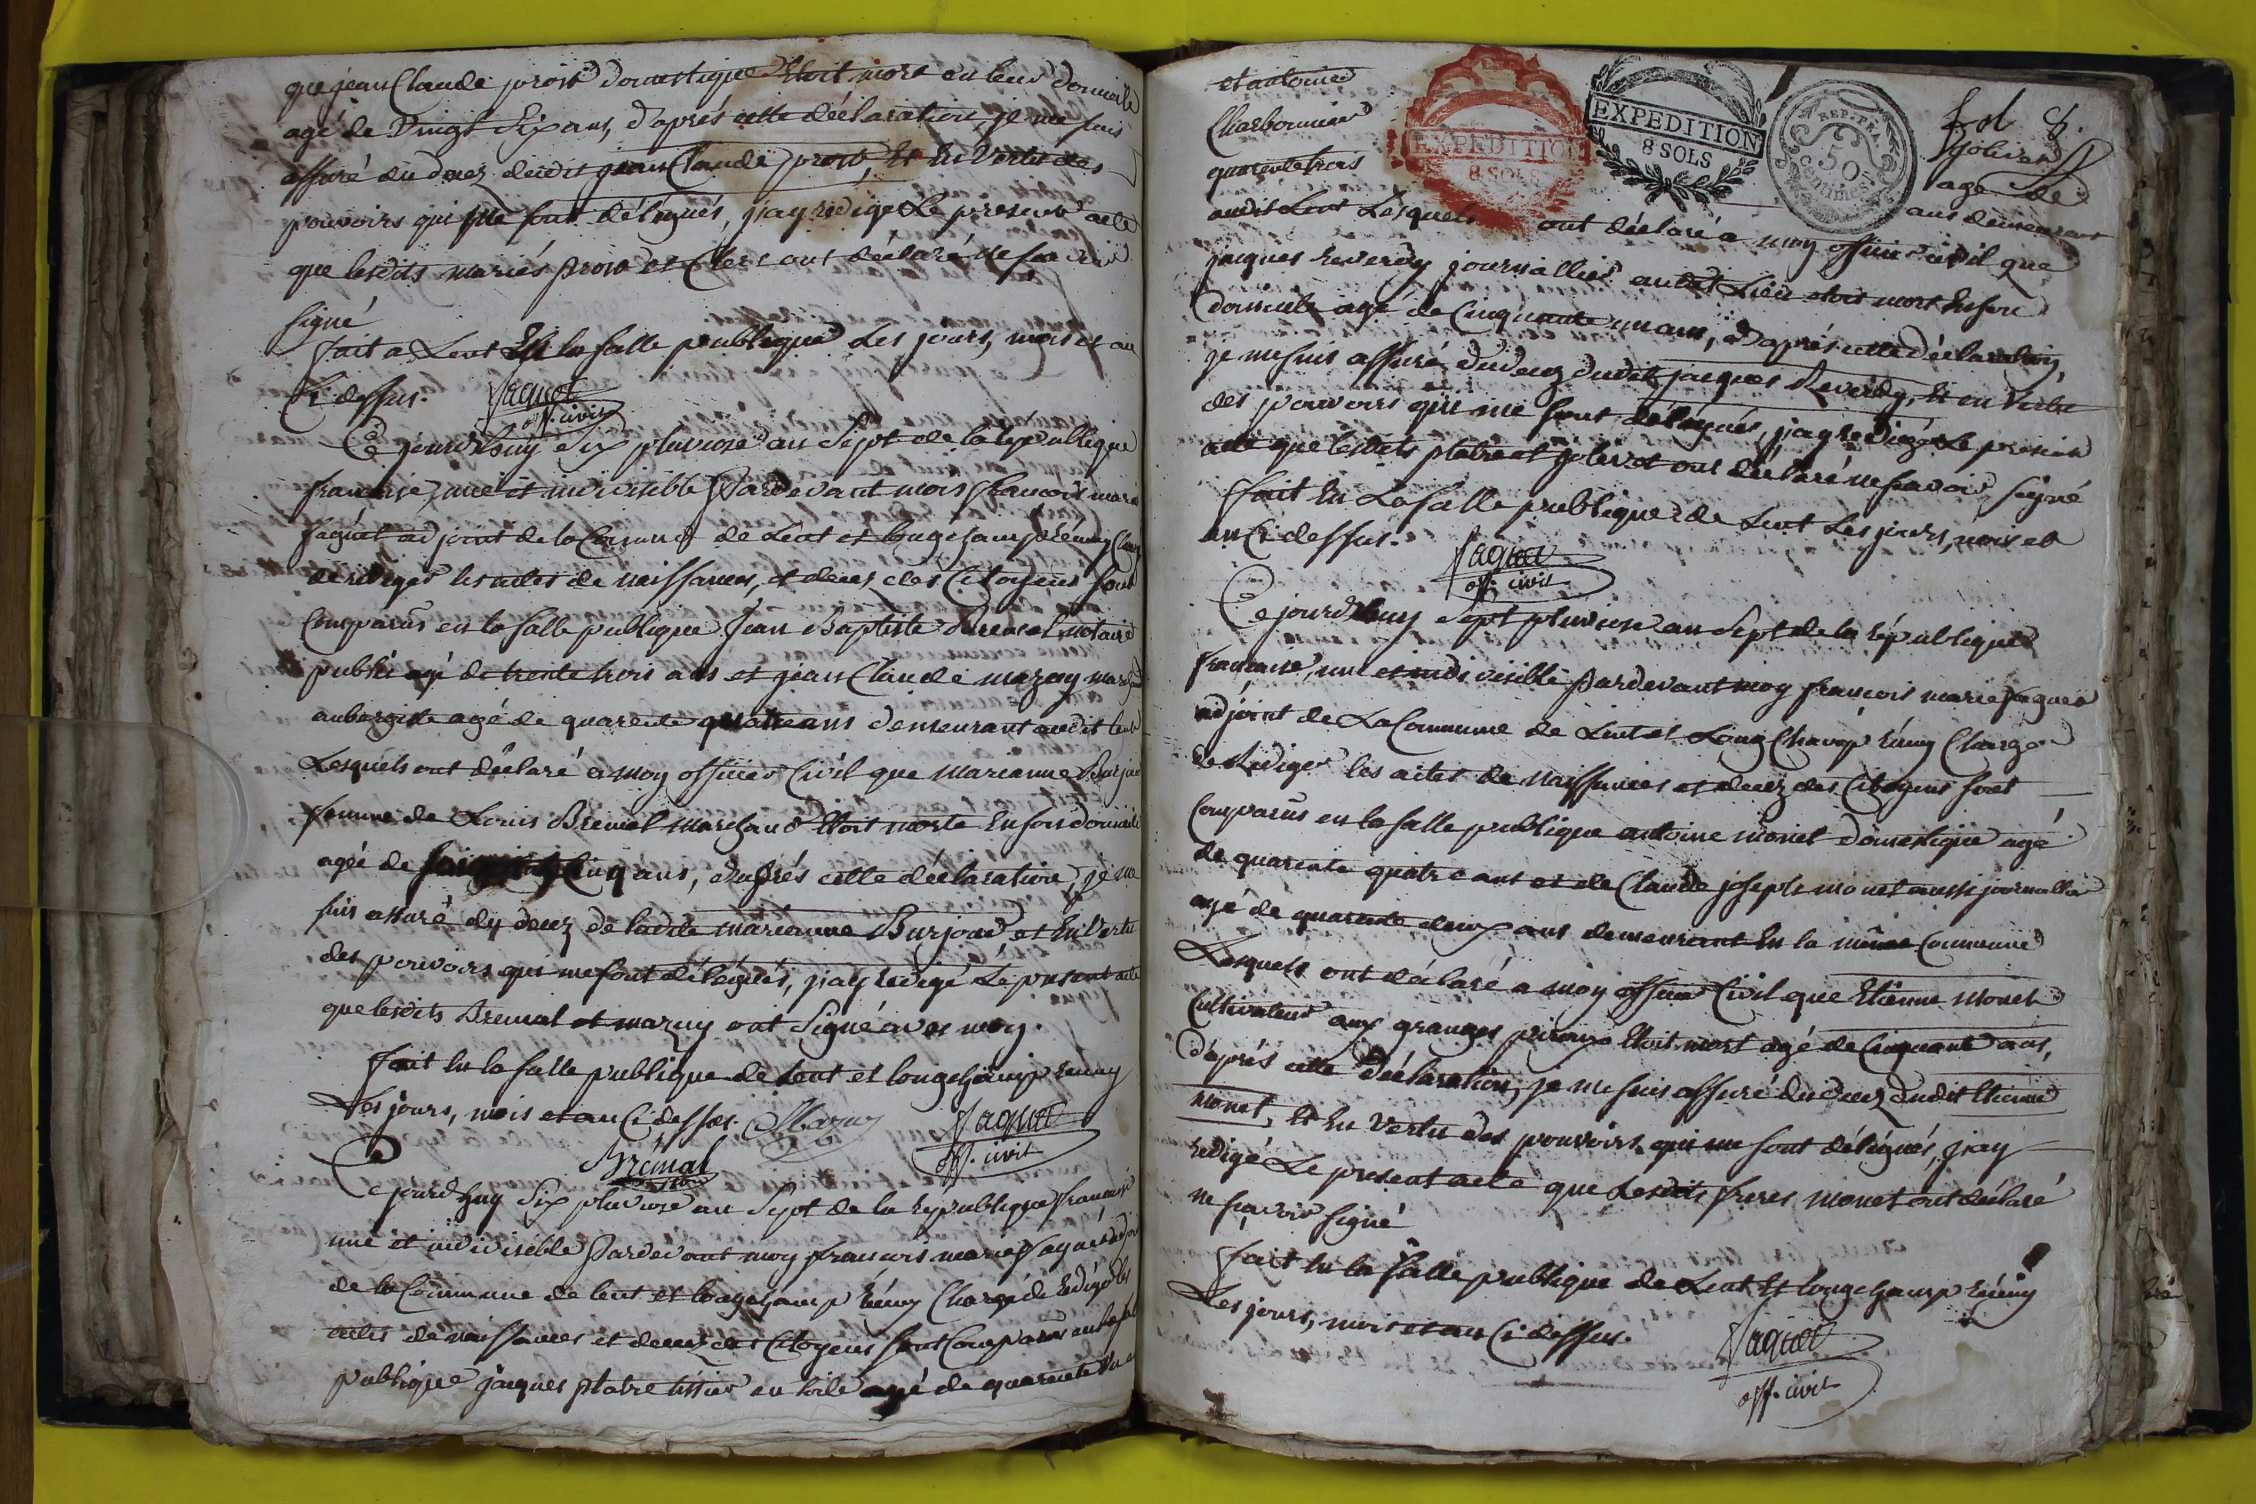 que jean Claude prost domestique Etoit mort en leur domicile
agé de vingt Six ans, d'aprés cette déclaration, je me suis
assuré du decez dudit jean Claude prost, Et En Vertu des
pouvoirs qui me sont délégués, j'ay redigé Le present acte
que lesdits mariés prost et Clerc ont déclaré ne savoir
signé
fait a Lent En la salle publique Les jours, mois et an
Ci dessus. Jaquet
off. civil
Ce jourd'huy Six pluviose an Sept de la republique
francaise, une et indivisible Pardevant mois francois marie
Jaquet adjoint de la Commune de Lent et longchamp réuny Chargé
de rediger les actes de naissances, et decez des Citoyens sont
Comparus en la salle publique Jean Baptiste Bremal notaire
public agé de trente trois ans et jean Claude mazuy marchand
aubergiste agé de quarente quatre ans demeurant audit lent
Lesquels ont déclaré a moy officier Civil que marianne Burjoud
femme de Louis Bremal marchand Etoit morte En son domicile
agé de Cinq ans, d'aprés cette déclaration, je me
suis assuré du decez de ladite marianne Burjoud et En Vertu
des pouvoirs qui me sont délégués, j'ay redigé Le present acte
que lesdits Bremal et mazuy ont Signé avec moy.
fait En la salle publique de Lent et longchamp reuny
Les jours, mois et an Ci dessus. Mazuy Jaquet
Brémal off. civil
Ce jourd'huy Six pluviose an Sept de la republique francaise
une et indivisible Pardevant moy francois marie Jaquet adjoint
de la Commune de lent et longchamp réuny Chargé de Rediger les
actes de naissances et decez des Citoyens sont Comparus en la salle
publique jacques platre tissier en toile agé de quarente
et antoine golivet
Charbonnier agé de
quarente trois ans demeurant
audit Lent Lesquels ont déclaré a moy officier civil que
jacques Reverdy journallier audit Lieu etoit mort En son
domicile agé de Cinquante un ans, d'aprés cette déclaration,
je me suis assuré du decez dudit jacques Reverdy, Et en Vertu
des pouvoirs qui me sont délégués, j'ay redigé Le present
acte que lesdits platre et golivet ont déclaré ne savoir signé
fait En La salle publique de Lent Les jours, mois et
an Ci dessus. Jaquet
off. civil
Ce jourd'huy Sept pluviose an Sept de la République
francaise, une et indivisible Pardevant moy francois marie Jaquet
adjoint de La Commune de Lent et Long Champ réuny Chargé
de Rediger les actes de naissances et decez des Citoyens sont
Comparus en la salle publique antoine monet domestique agé
de quarente quatre ans et de Claude joseph monet aussi journallier
agé de quarente deux ans demeurant En la même Commune
Lesquels ont déclaré a moy officier Civil que Etienne Monet
Cultivateur aux granges Etoit mort agé de Cinquante ans,
d'aprés cette déclaration, je me suis assuré du decez dudit Etienne
monet, Et En vertu des pouvoirs qui me sont délégués, j'ay
redigé Le present acte que Lesdits freres monet ont déclaré
ne savoir signé
fait En la salle publique de Lent Et longchamp réuny
Les jours, mois et an Ci dessus. Jaquet
off. civil
EXPEDITION
8 SOLS
EXPEDITION
8 SOLS
REP. FRA.
50
centimes